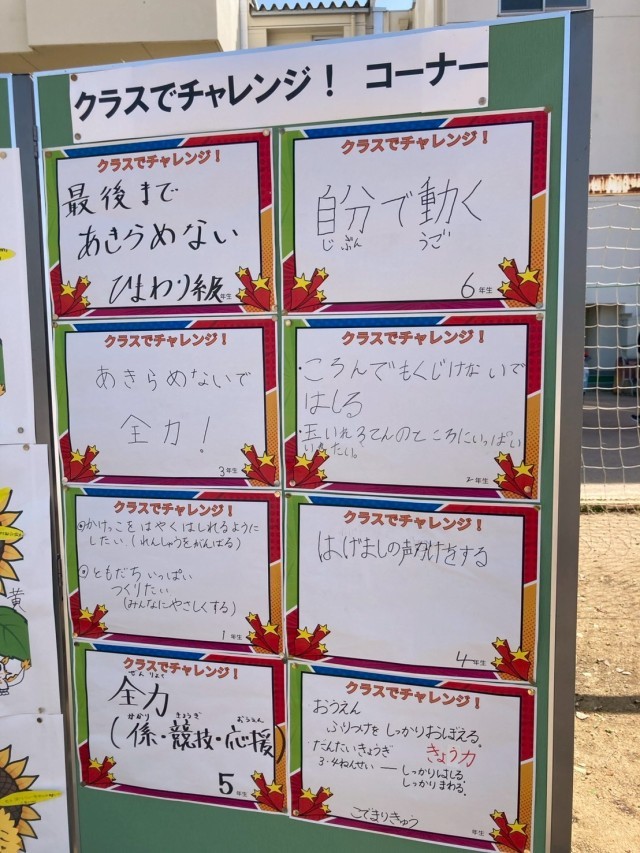 クラスでチャレンジ！ コーナー
クラスでチャレンジ！
最後まで
あきらめない
ひまわり級
年生
クラスでチャレンジ！
自分で動く
じぶん うご
6年生
クラスでチャレンジ！
あきらめないで
全力！
3年生
クラスでチャレンジ！
・ころんでもくじけないで
はしる
・玉いれ てんのところにいっぱい
たい。
2年生
クラスでチャレンジ！
◎かけっこをはやくはしれるように
したい（れんしゅうをがんばる）
◎ともだちいっぱい
つくりたい
（みんなにやさしくする）
1年生
クラスでチャレンジ！
はげましの声かけをする
4年生
クラスでチャレンジ！
ぜんりょく
全力
かかり きょうぎ おうえん
（係・競技・応援）
5年生
クラスでチャレンジ！
おうえん
ふりつけをしっかりおぼえる。
だんたいきょうぎ きょう力
3・4ねんせい ― しっかりはしる
しっかりまわる。
こでまりきゅう
年生
黄